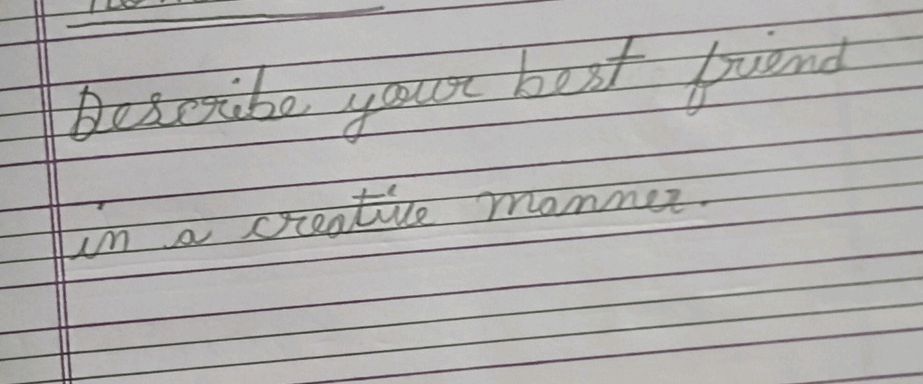 Describe your best friend
in a creative manner.